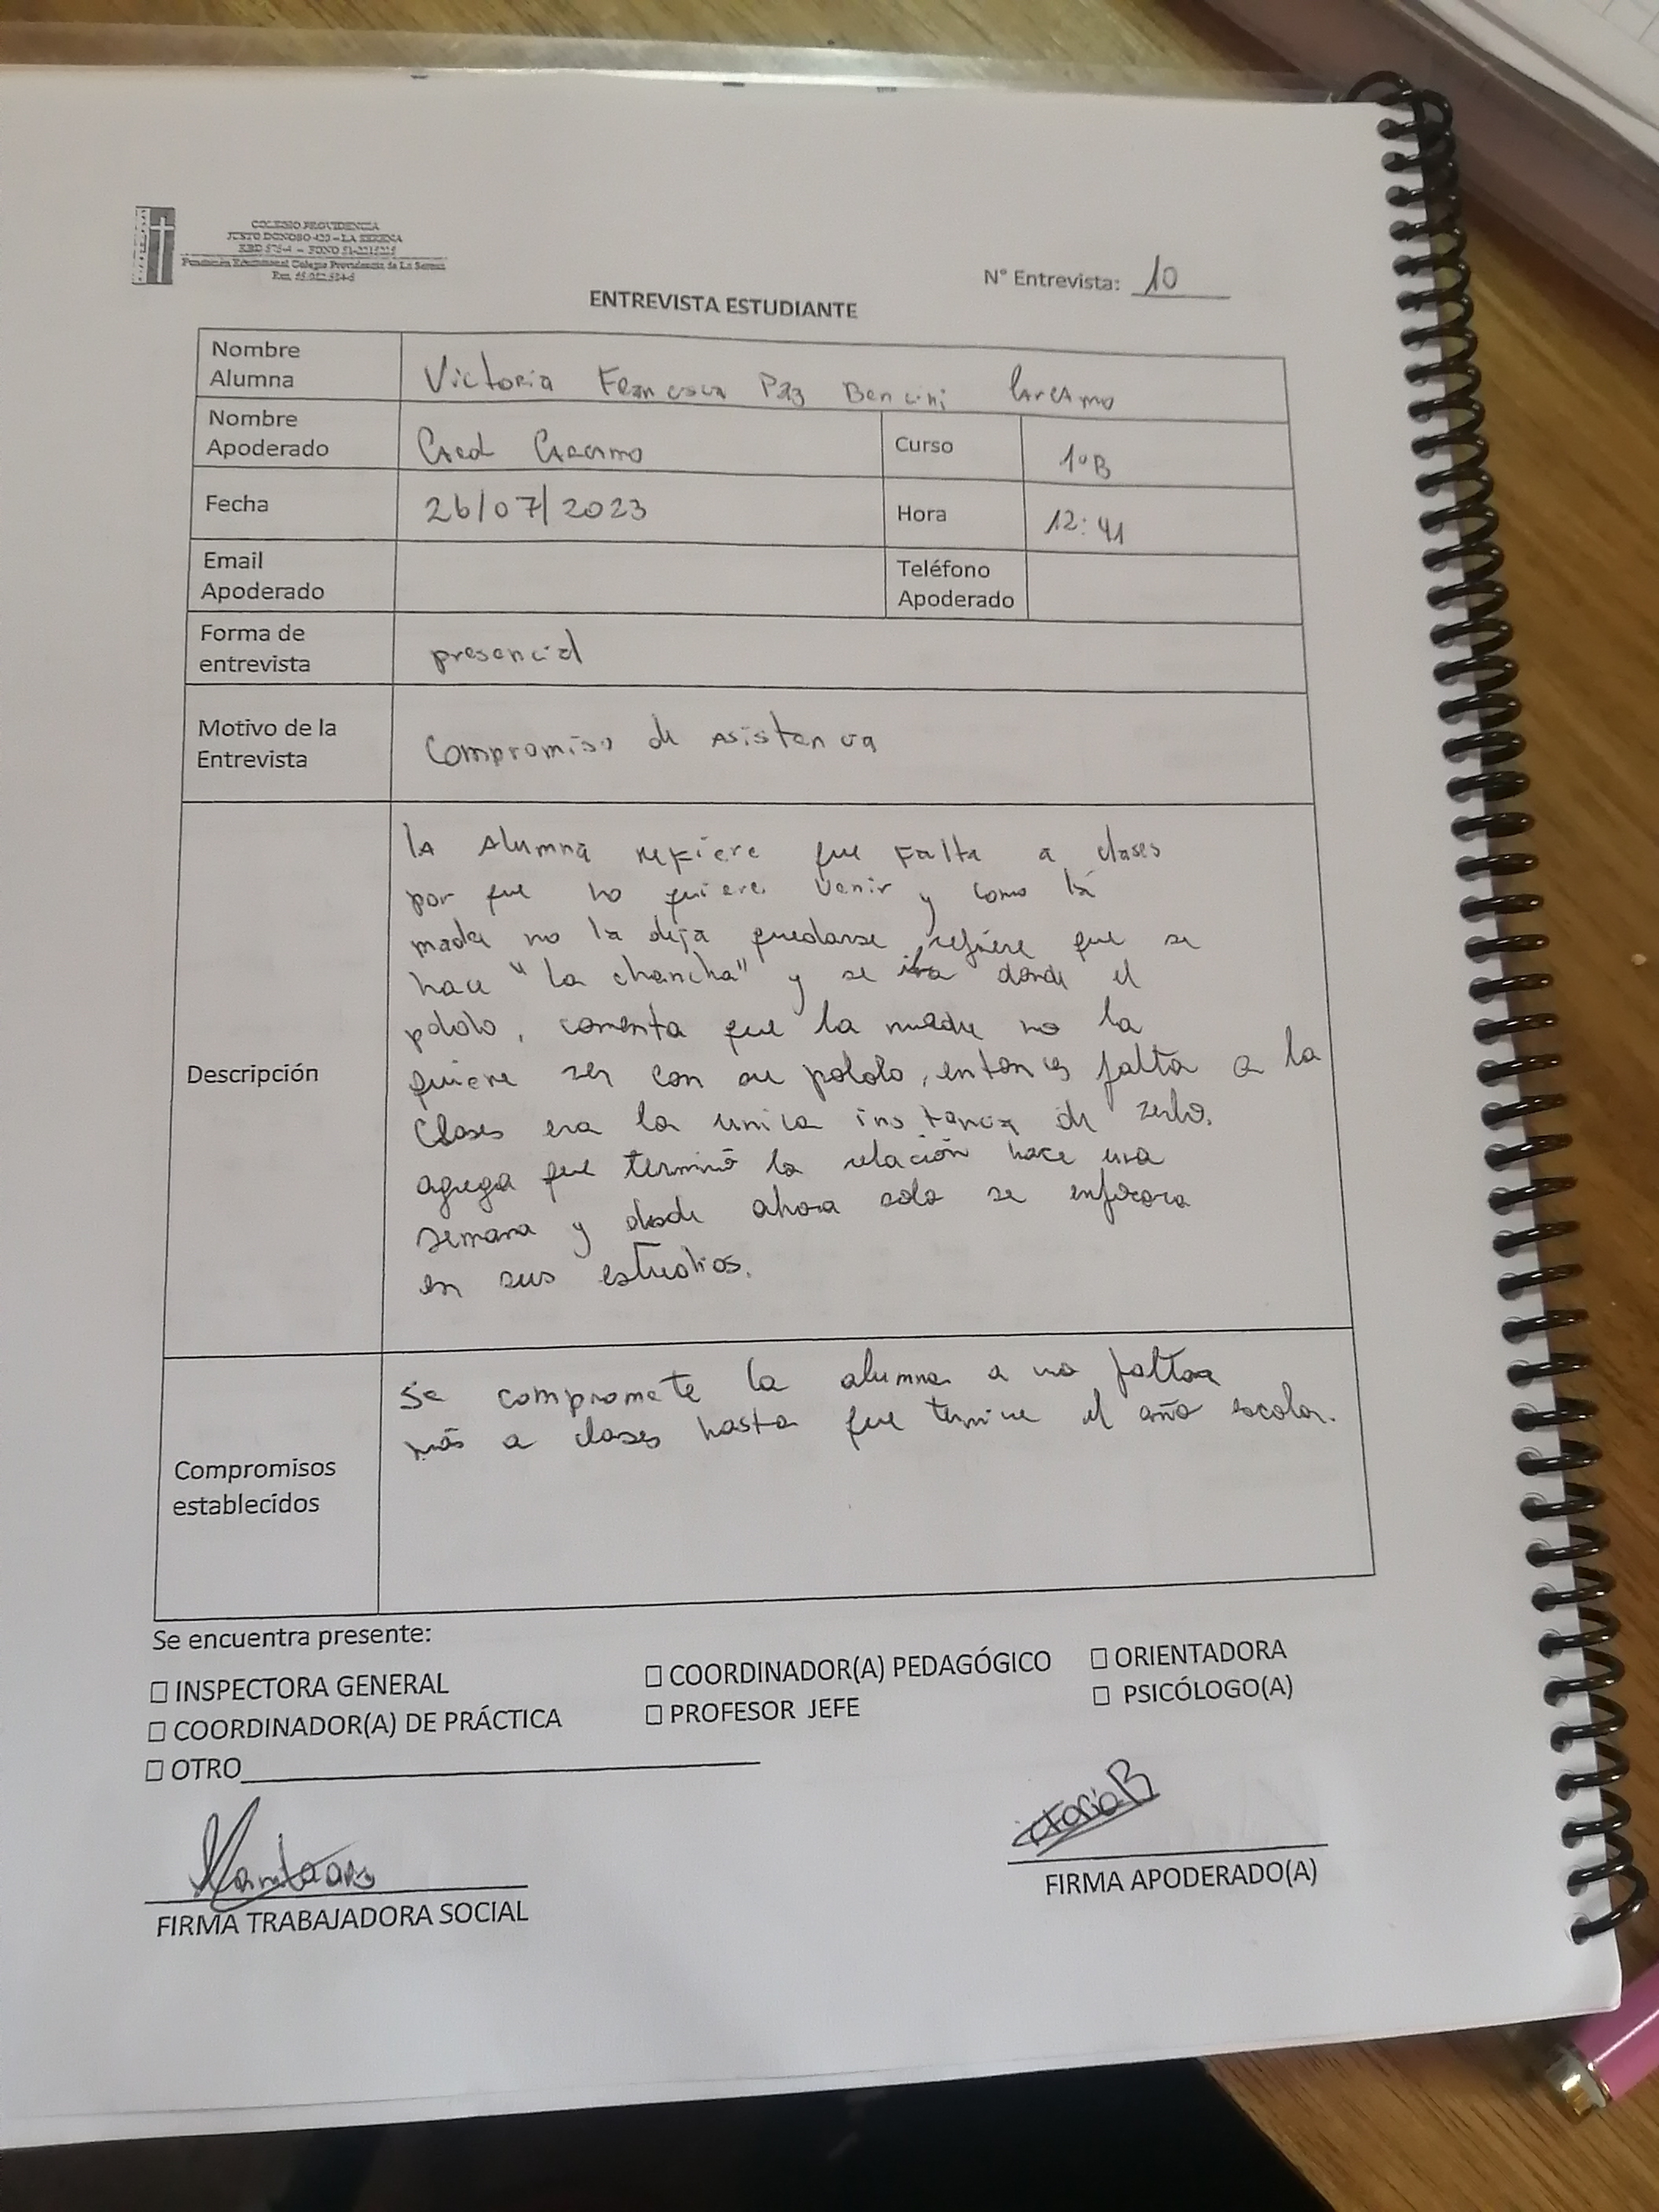 COLEGIO PROVIDENCIA
JUSTO DONOSO 420 – LA SERENA
Fundación Educacional Colegio Providencia de La Serena
N° Entrevista: 10
ENTREVISTA ESTUDIANTE
Nombre Alumna Victoria Francesca Paz Bencini Carcamo
Nombre Apoderado Carcamo Curso 1°B
Fecha 26/07/2023 Hora 12:41
Email Apoderado Teléfono Apoderado
Forma de entrevista presencial
Motivo de la Entrevista Compromiso de Asistencia
Descripción
la Alumna refiere que Falta a clases
por que no quiere venir y como la
madre no la deja quedarse, refiere que se
hace "la chancha" y se iba donde el
pololo, comenta que la madre no la
quiere ver con su pololo, entonces falta a la
Clases era la unica instancia de verlo.
agrega que terminó la relación hace una
semana y desde ahora solo se enfocara
en sus estudios.
Compromisos establecidos
Se compromete la alumna a no faltar
más a clases hasta que termine el año escolar.
Se encuentra presente:
☐ INSPECTORA GENERAL ☐ COORDINADOR(A) PEDAGÓGICO ☐ ORIENTADORA
☐ COORDINADOR(A) DE PRÁCTICA ☐ PROFESOR JEFE ☐ PSICÓLOGO(A)
☐ OTRO
FIRMA TRABAJADORA SOCIAL
FIRMA APODERADO(A)